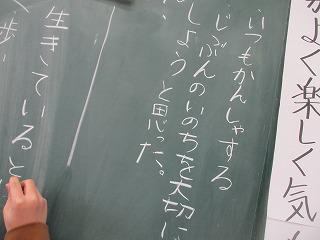 よく楽しく気
いつもかんしゃする
じぶんのいのちを大切に
しようと思った。
生きていると
歩